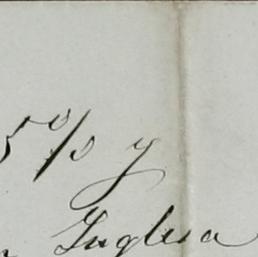 5 % y
Inglesa